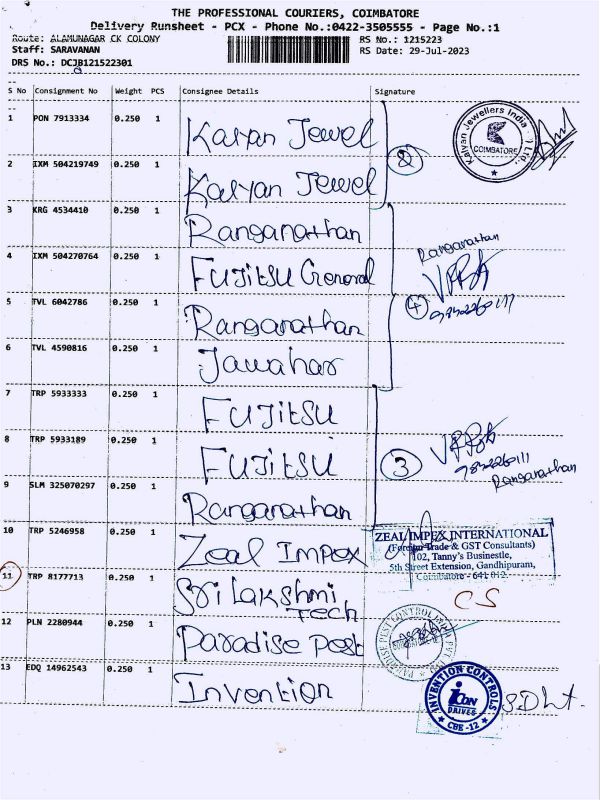 THE PROFESSIONAL COURIERS, COIMBATORE
Delivery Runsheet - PCX - Phone No.:0422-3505555 - Page No.:1
Route: ALAMUNAGAR CK COLONY
RS No.: 1215223
Staff: SARAVANAN
RS Date: 29-Jul-2023
DRS No.: DCJB121522301
S No Consignment No Weight PCS Consignee Details Signature
1 PON 7913334 0.250 1 Kalyan Jewel
Kalyan Jewellers India
COIMBATORE
2 IXM 504219749 0.250 1 Kalyan Jewel
2
3 KRG 4534410 0.250 1 Ranganathan
Ranganathan
4 IXM 504270764 0.250 1 FUJITSU General
5 TVL 6042786 0.250 1 Ranganathan
4
6 TVL 4590816 0.250 1 Jawahar
7 TRP 5933333 0.250 1 FUJITSU
8 TRP 5933189 0.250 1 FUJITSU
3
Ranganathan
9 SLM 325070297 0.250 1 Ranganathan
10 TRP 5246958 0.250 1 Zeal Impex
ZEAL IMPEX INTERNATIONAL
(Foreign Trade & GST Consultants)
102, Tanny's Businestle,
5th Street Extension, Gandhipuram,
Coimbatore - 641 012.
11 TRP 8177713 0.250 1 Sri Lakshmi
Tech
CS
12 PLN 2280944 0.250 1 Paradise Pest
PARADISE PEST CONTROL
13 EDQ 14962543 0.250 1 Invention
INVENTION CONTROLS
iCON
DRIVES
CBE -12